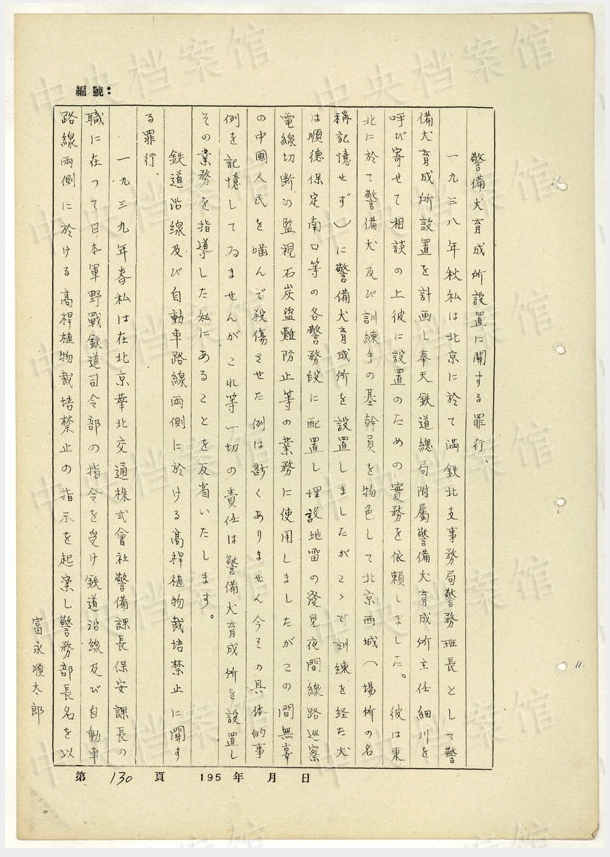 編號:
警備犬育成所設置に関する罪行、
一九三八年秋私は北京に於て満鉄北支事務局警務班長として警
備犬育成所設置を計画し奉天鉄道総局附属警備犬育成所主任細川を
呼び寄せて相談の上彼に設置のための實務を依頼しました。彼は東
北に於て警備犬及び訓練手の基幹員を物色して北京西城(場所の名
称記憶せず)に警備犬育成所を設置しましたがこゝで訓練を経た犬
は順徳保定南口等の各警務段に配置し埋設地雷の発見夜間線路巡察
電線切断の監視石炭盗難防止等の業務に使用しましたがこの間無辜
の中國人民を噛んで殺傷させた例は尠くありません今その具体的事
例を記憶してゐませんがこれ等一切の責任は警備犬育成所を設置し
その業務を指導した私にあることを反省いたします。
鉄道沿線及び自動車路線両側に於ける高桿植物栽培禁止に関す
る罪行、
一九三九年春私は在北京華北交通株式會社警備課長保安課長の
職に在つて日本軍野戰鉄道司令部の指令を受け鉄道沿線及び自動車
路線両側に於ける高桿植物栽培禁止の指示を起案し警務部長名を以
富永順太郎
第 130 頁 195 年 月 日
中央档案馆